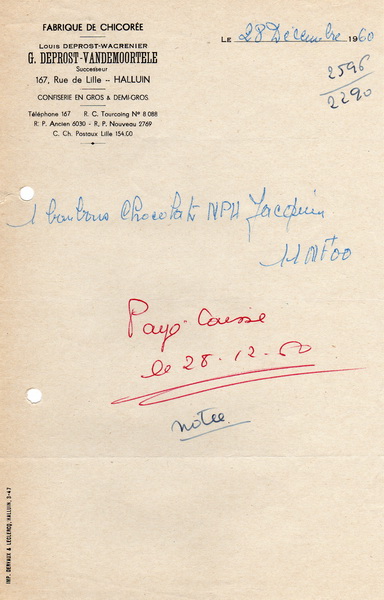 FABRIQUE DE CHICORÉE
LOUIS DEPROST-WACRENIER
G. DEPROST-VANDEMOORTELE
Successeur
167, Rue de Lille -- HALLUIN
CONFISERIE EN GROS & DEMI-GROS
Téléphone 167 R. C. Tourcoing Nº 8.088
R. P. Ancien 6030 - R. P. Nouveau 2769
C. Ch. Postaux Lille 154.00
LE 28 Décembre 1960
2596
2290
1 bonbons Chocolat NPH Jacquin
11 NF00
Payé Caisse
le 28-12-60
notée
IMP. DERVAUX & LECLERCQ, HALLUIN, 3-47